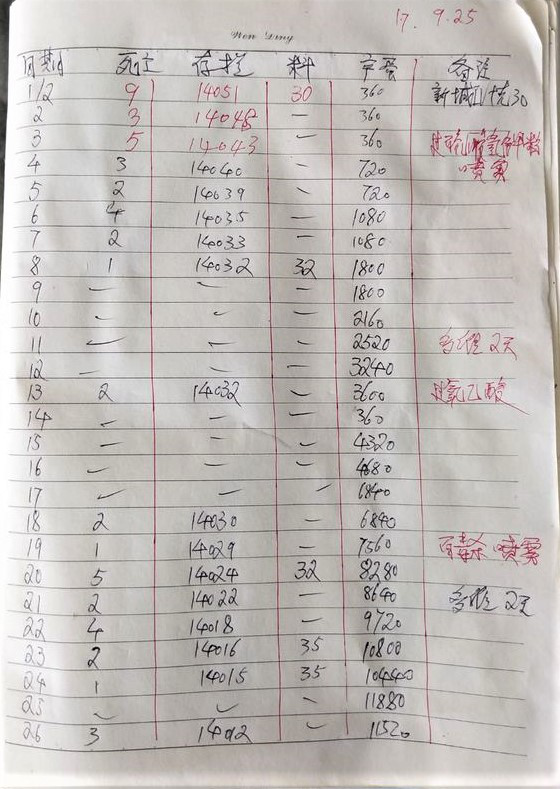 17. 9. 25
Wen Ding
日期 死亡 存栏 料 产蛋 备注
1/2 9 14051 30 360 新城 30
2 3 14048 — 360
3 5 14043 — 360
4 3 14040 — 720 喷雾
5 2 14039 — 720
6 4 14035 — 1080
7 2 14033 — 1080
8 1 14032 32 1800
9 — — — 1800
10 — — — 2160
11 — — — 2520 多维 2天
12 — — — 3240
13 2 14032 — 3600 过氧乙酸
14 — — — 360
15 — — — 4320
16 — — — 4680
17 — — — 6840
18 2 14030 — 6840
19 1 14029 — 7560 喷雾
20 5 14024 32 8280
21 2 14022 — 8640 多维 2天
22 4 14018 — 9720
23 2 14016 35 10800
24 1 14015 35 10440
25 — — — 11880
26 3 14012 — 11520